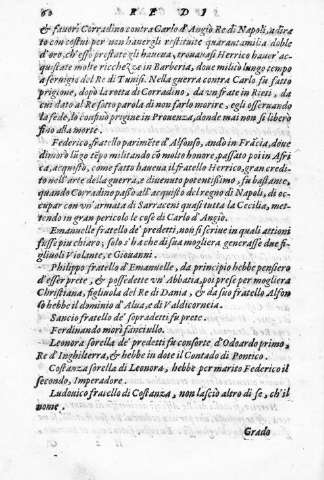 60 PEDI
& favorì Corradino contra Carlo d'Angiò Re di Napoli, adira
to con costui per non hauergli ristituite quaranta mila doble
d'oro, ch'esso prestate gli haueua, trouauasi Herrico hauer ac-
quistate molte ricchezze in Barberia, doue militò lungo tempo
a seruigio del Re di Tunisi. Nella guerra contra Carlo fu fatto
prigione, dopò la rotta di Corradino, da un frate in Rieti, da
cui dato al Re sotto parola di non farlo morire, egli osseruando
la fede, lo confinò prigione in Prouenza, donde mai non si liberò
fino alla morte.
Federico, fratello parimẽte d'Alfonso, andò in Frãcia, doue
dimorò lugo tẽpo militando cõ molto honore, passato poi in Afri
ca, acquistò, come fatto haueua il fratello Herrico, gran credi-
to nell'arte della guerra, e diuenuto potentissimo, fu bastante,
quando Corradino passò all'acquisto del regno di Napoli, di oc-
cupar con vn'armata di Sarraceni quasi tutta la Cecilia, met-
tendo in gran pericolo le cose di Carlo d'Angiò.
Emanuelle fratello de' predetti, non si scriue in quali attioni
fusse piu chiaro, solo s'ha che di sua mogliera generasse due fi-
gliuoli Violante, e Giouanni.
Philippo fratello d'Emanuelle, da principio hebbe pensiero
d'esser prete, & possedette vn'Abbatia, poi prese per mogliera
Christiana, figliuola del Re di Dania, & da suo fratello Alfon
so hebbe il dominio d'Alua, e di Valdicorneia.
Sancio fratello de' sopradetti fu prete.
Ferdinando morì fanciullo.
Leonora sorella de' predetti fu consorte d'Odoardo primo,
Re d'Inghilterra, & hebbe in dote il Contado di Pontico.
Costanza sorella di Leonora, hebbe per marito Federico il
secondo, Imperadore.
Ludouico fratello di Costanza, non lasciò altro di se, ch'il
nome.
Grado